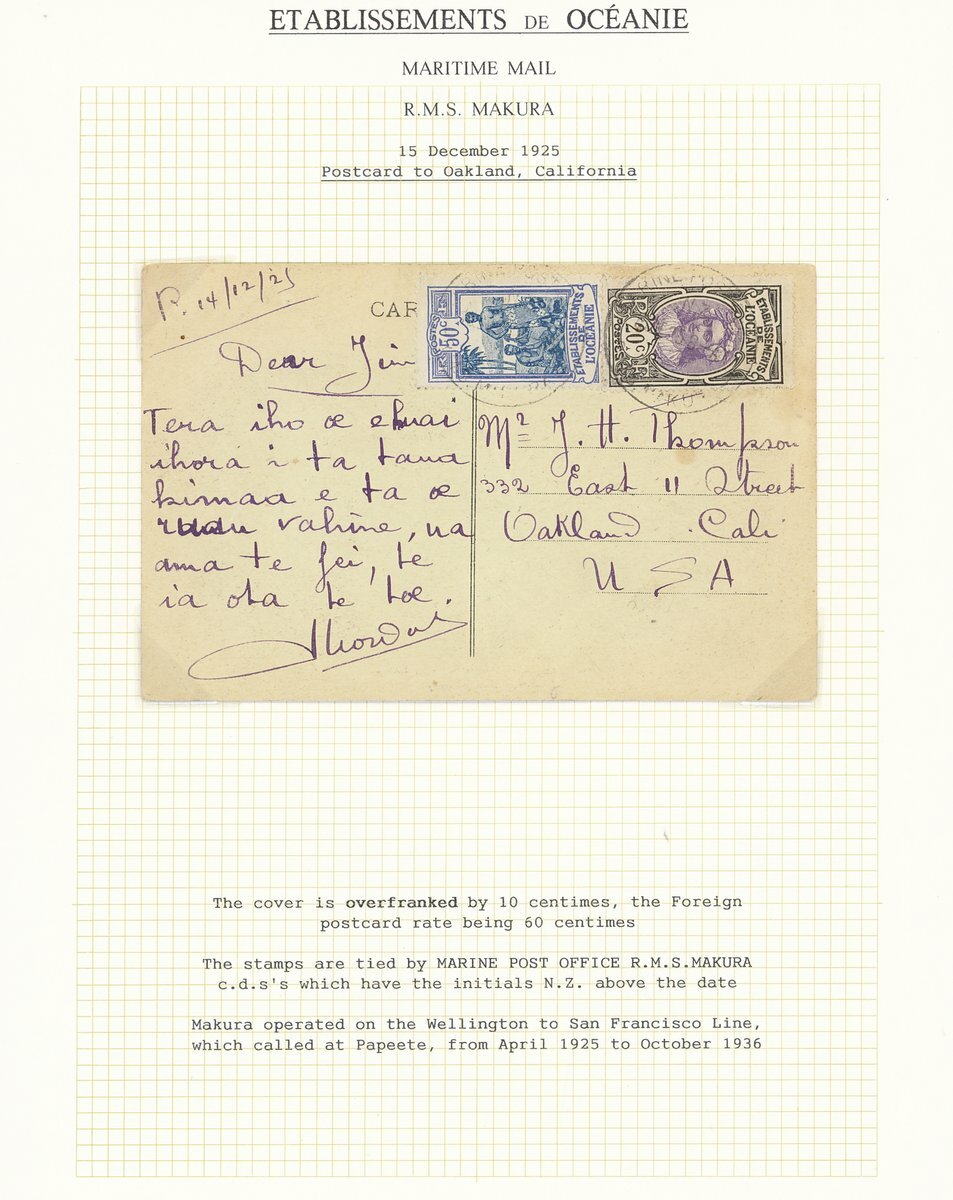 ETABLISSEMENTS DE OCÉANIE
MARITIME MAIL
R.M.S. MAKURA
15 December 1925
Postcard to Oakland, California
P. 14/12/25
CAR
POSTES
50c
ETABLISSEMENTS
DE
L'OCÉANIE
POSTES
20c
ETABLISSEMENTS
DE
L'OCÉANIE
Dear Jim
Tera iho oe
ihora i ta taua
kimaa e ta oe
vahine, na
ama te fei, te
ia ota te toe.
Mr J. H. Thompson
332 East 11 Street
Oakland Cali
U S A
The cover is overfranked by 10 centimes, the Foreign
postcard rate being 60 centimes
The stamps are tied by MARINE POST OFFICE R.M.S.MAKURA
c.d.s's which have the initials N.Z. above the date
Makura operated on the Wellington to San Francisco Line,
which called at Papeete, from April 1925 to October 1936